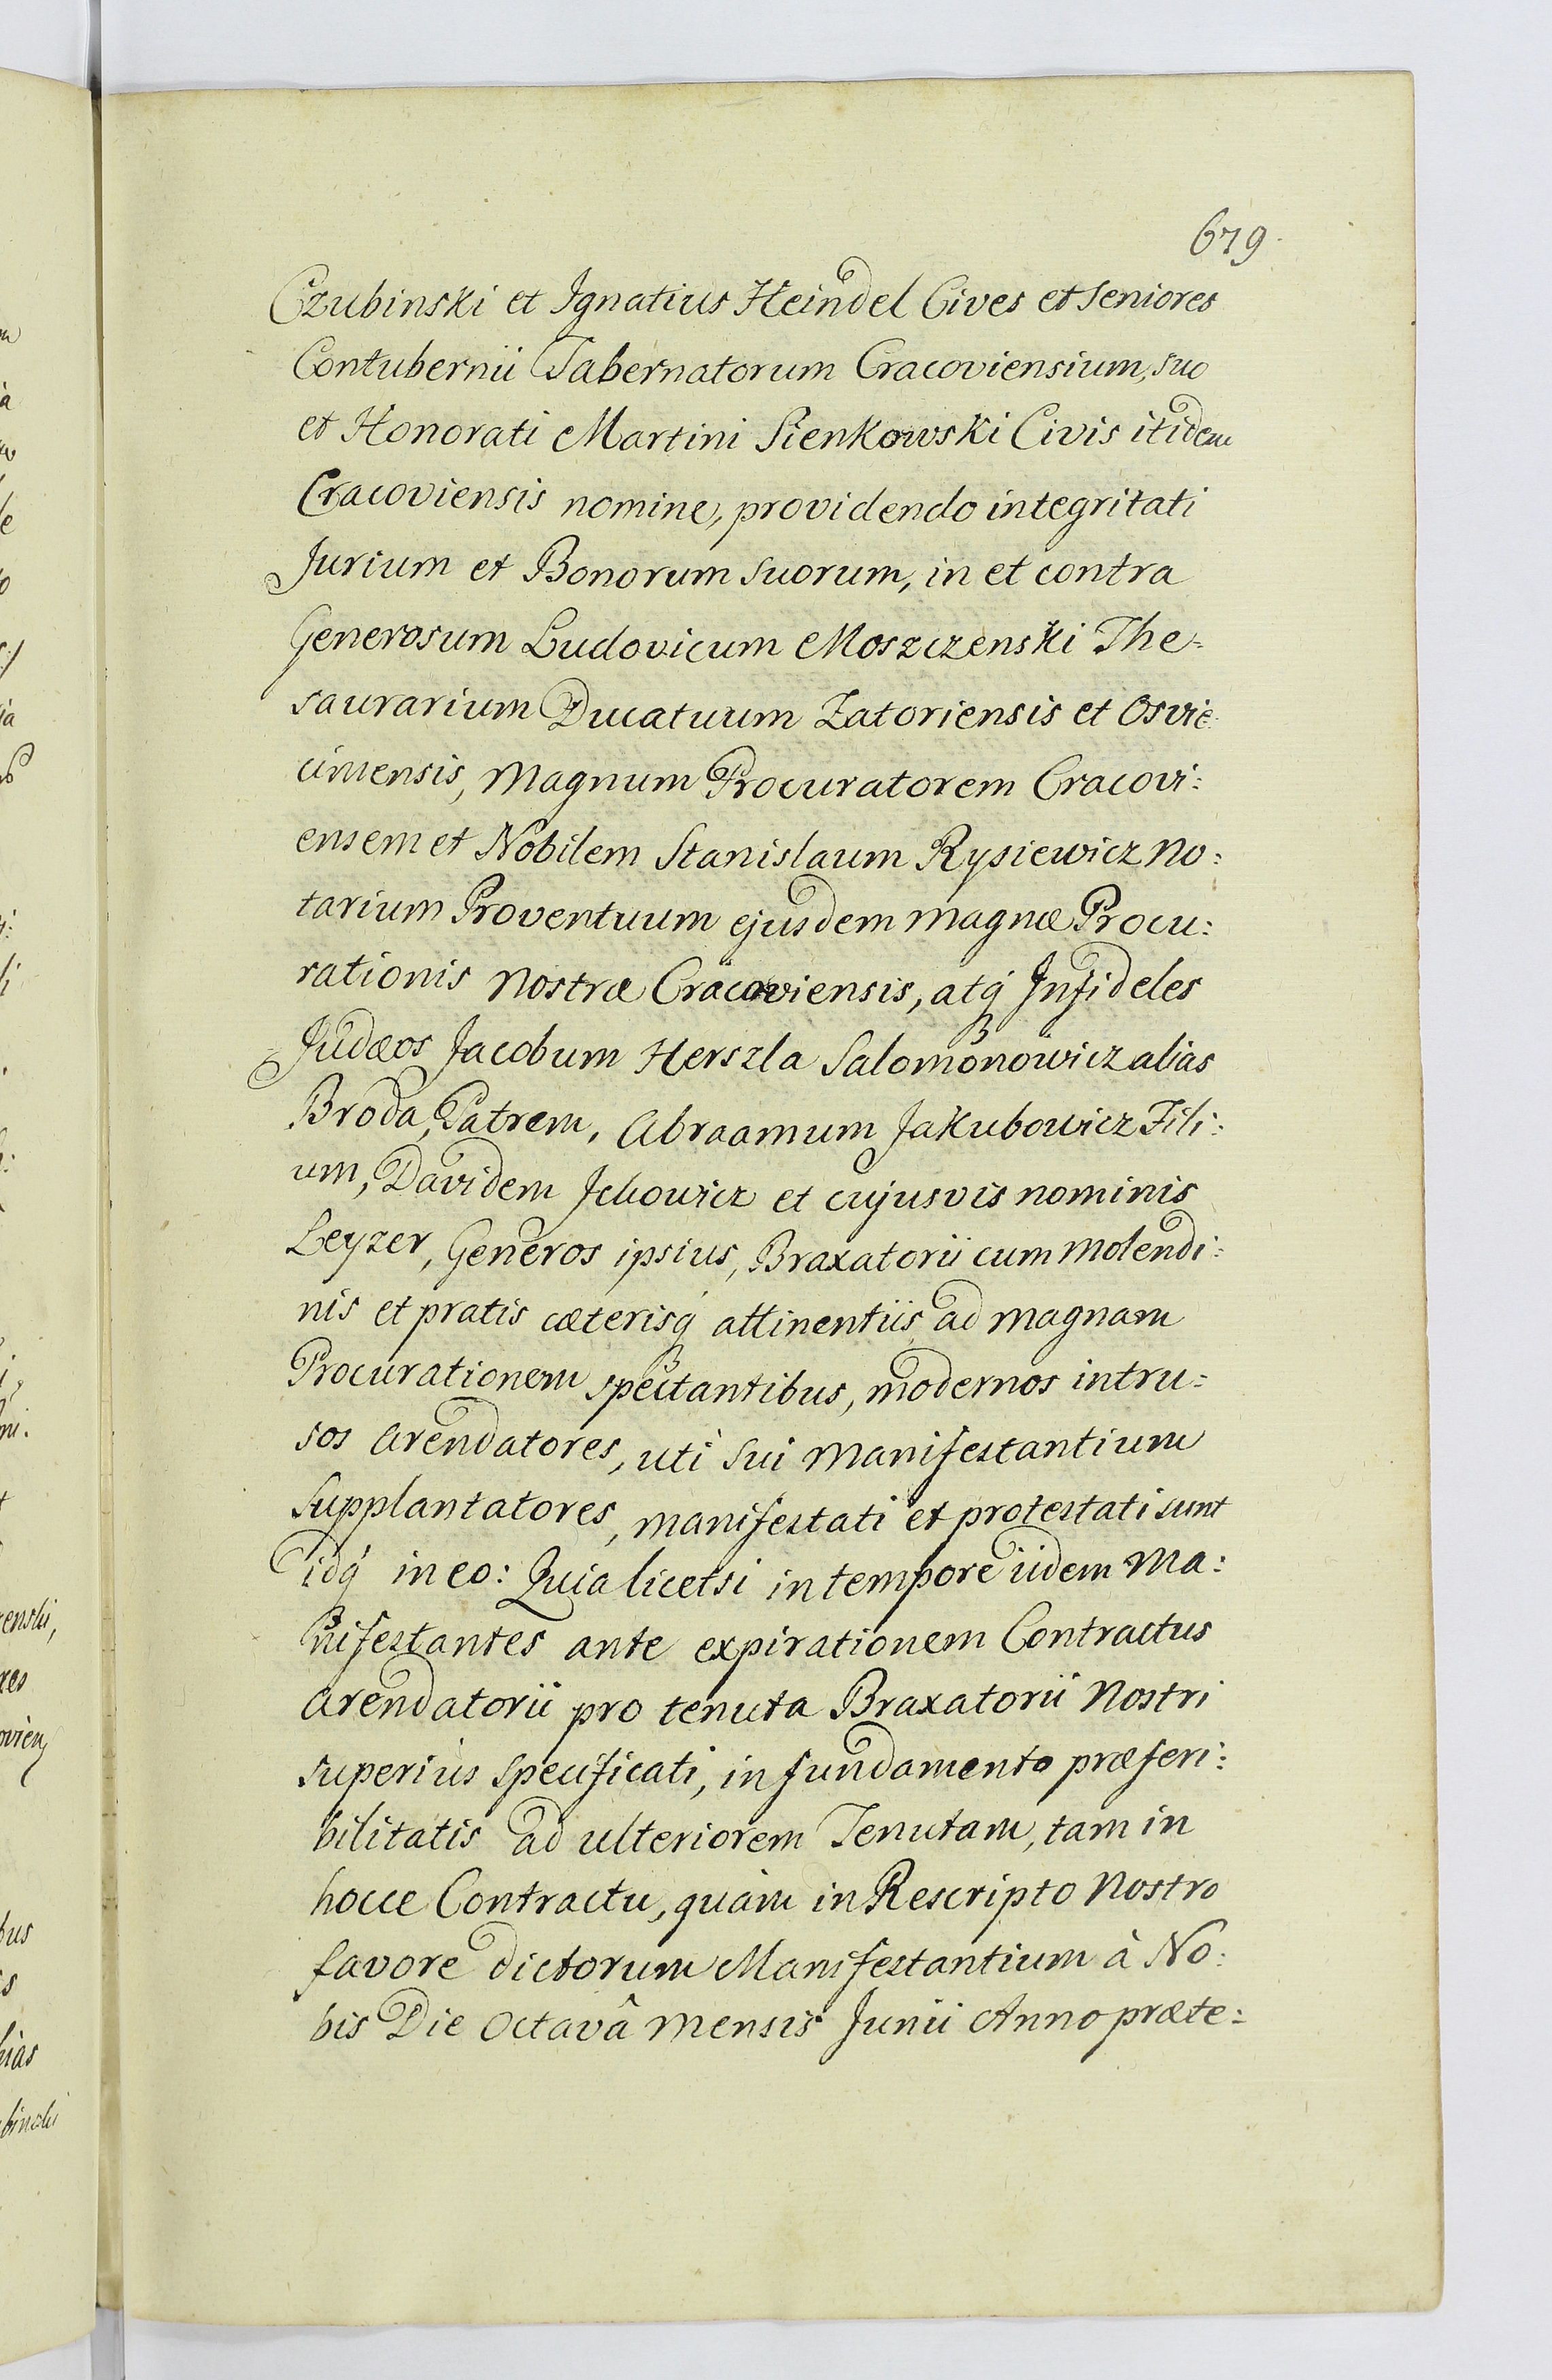 679.
Czubinski et Ignatius Heindel Cives et Seniores
Contubernii Tabernatorum Cracoviensium, suo
et Honorati Martini Sienkowski Civis itidem
Cracoviensis nomine, providendo integritati
Jurium et Bonorum suorum, in et contra
Generosum Ludovicum Moszczenski The-
saurarium Ducatuum Zatoriensis et Osvie-
cimensis, Magnum Procuratorem Cracovi:
ensem et Nobilem Stanislaum Rysiewicz No:
tarium Proventuum ejusdem Magnæ Procu:
rationis Nostræ Cracoviensis, atq́ Infideles
Judæos Jacobum Herszla Salomonowicz alias
Broda, Patrem, Abraamum Jakubowicz Fili:
um, Davidem Ickowicz et cujusvis nominis
Leyzer, Generos ipsius, Braxatorii cum Molendi:
nis et pratis cæterisq́ attinentiis ad Magnam
Procurationem spectantibus, modernos intru=
sos Arendatores, uti sui Manifestantium
Supplantatores, manifestati et protestati sunt
idq́ in eo: Quia licetsi in tempore iidem Ma:
nifestantes ante expirationem Contractus
Arendatorii pro tenuta Braxatorii Nostri
superius specificati, in fundamento præferi:
bilitatis ad ulteriorem Tenutam, tam in
hocce Contractu, quàm in Rescripto Nostro
favore dictorum Manifestantium à No:
bis Die Octavâ Mensis Junii Anno præte=